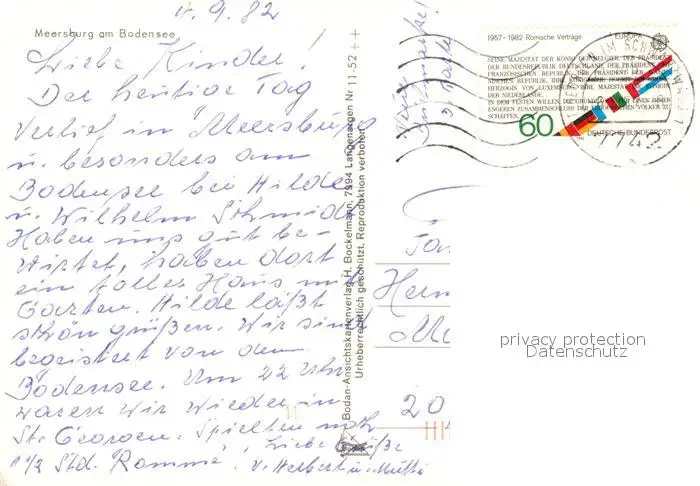 17.9.82
Meersburg am Bodensee
Liebe Kinder!
Der heutige Tag
verlief in Meersburg
u. besonders am
Bodensee bei Hilde
u. Wilhelm Schmid
Haben uns gut be-
wirtet, haben dort
ein tolles Haus mit
Garten. Hilde läßt
schön grüßen. Wir sind
begeistert von dem
Bodensee. Um 22 Uhr
waren wir wieder in
St. Georgen. Spielten noch
1 1/2 Std. "Rommé", Liebe Grüße
v. Herbert u. Mutti
Bodan-Ansichtskartenverlag H. Bockelmann, 7994 Langenargen Nr 11-52 ++
Urheberrechtlich geschützt, Reproduktion verboten
1957-1982 Römische Verträge EUROPA
SEINE MAJESTÄT DER KÖNIG DER BELGIER, DER PRÄSIDENT
DER BUNDESREPUBLIK DEUTSCHLAND, DER PRÄSIDENT DER
FRANZÖSISCHEN REPUBLIK, DER PRÄSIDENT DER
HERZOGIN VON LUXEMBURG, IHRE MAJESTÄT DIE KÖNIGIN
DER NIEDERLANDE,
IN DEM FESTEN WILLEN, DIE GRUNDLAGEN FÜR EINEN IMMER
ENGEREN ZUSAMMENSCHLUSS DER EUROPÄISCHEN VÖLKER ZU
SCHAFFEN
60
DEUTSCHE BUNDESPOST
IM SCHWARZWALD 1
7742
Fam
20
privacy protection
Datenschutz